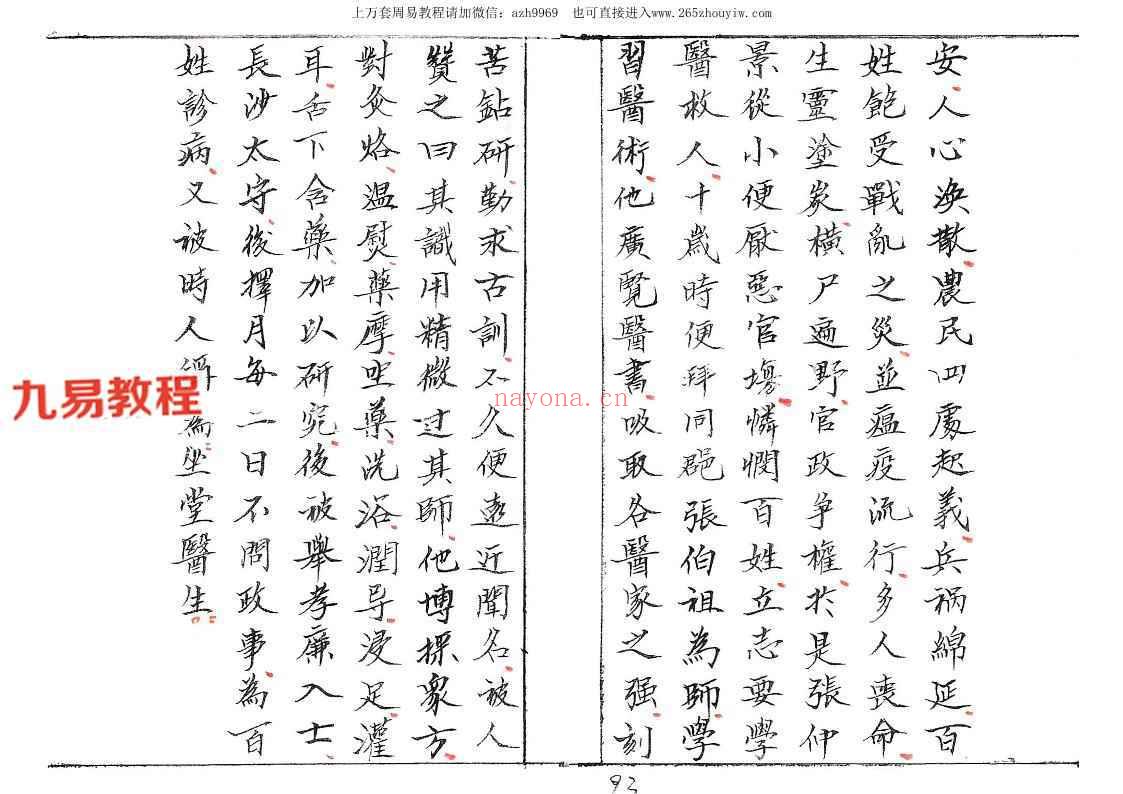 上万套周易教程请加微信：azh9969　也可直接进入www.265zhouyiw.com
安人心渙散農民四處起義兵禍綿延百
姓飽受戰亂之災並瘟疫流行多人喪命
生靈塗炭橫尸遍野官政爭權於是張仲
景從小便厭惡官場憐憫百姓立志要學
醫救人十歲時便拜同郡張伯祖為師學
習醫術他廣覽醫書吸取各醫家之强刻
苦鉆研勤求古訓不久便遠近聞名被人
贊之曰其識用精微过其師他博採眾方
對灸烙温熨藥摩坐藥洗浴潤导浸足灌
耳舌下含藥加以研究後被舉孝廉入士
長沙太守後擇月每二日不問政事為百
姓診病又被時人稱為坐堂醫生
九易教程
nayona.cn
92